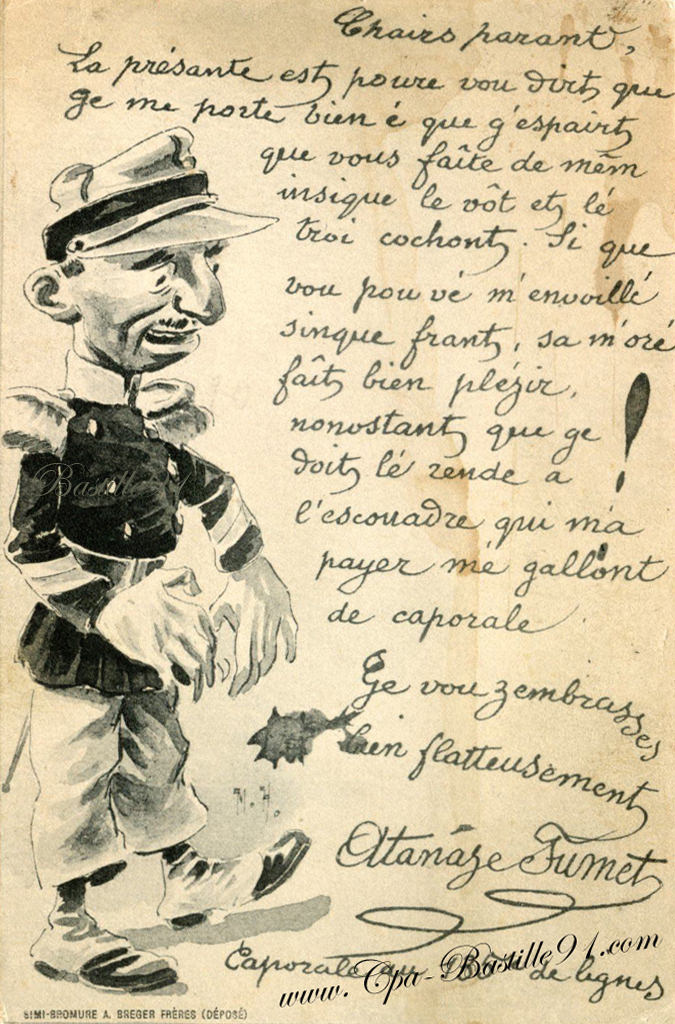 Chairs parant,
La présante est poure vou dirt que
ge me porte bien é que g'espairt
que vous faîte de mêm
insique le vôt et lé
troi cochont. Si que
vou pou vé m'envoillé
sinque frant, sa m'oré
faît bien plézir,
nonostant que ge
doit lé rende a !
l'escouadre qui m'a
payer mé gallont
de caporale
Ge vou zembrasses
bien flatteusement
M. H.
Atanâze Fumet
Caporale de lignes
Bastille91
www.Cpa-Bastille91.com
SIMI-BROMURE A. BREGER FRÈRES (DÉPOSÉ)